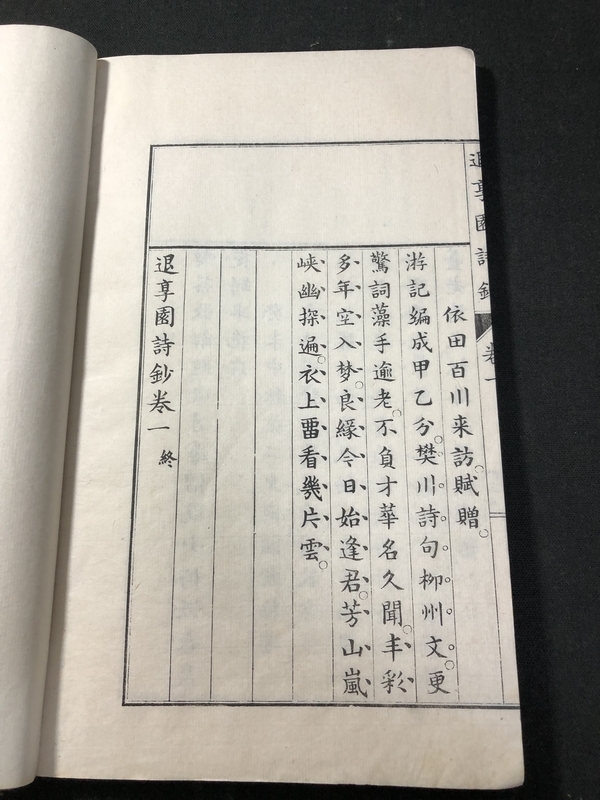 退享園詩鈔 卷一
依田百川来訪。賦贈。
游記編成甲乙分。樊川詩句柳州文。更
驚詞藻手逾老。不負才華名久聞。丰彩
多年空入梦。良緣今日始逢君。芳山嵐
峡幽探遍。衣上畱看幾片雲。
退享園詩鈔卷一 終